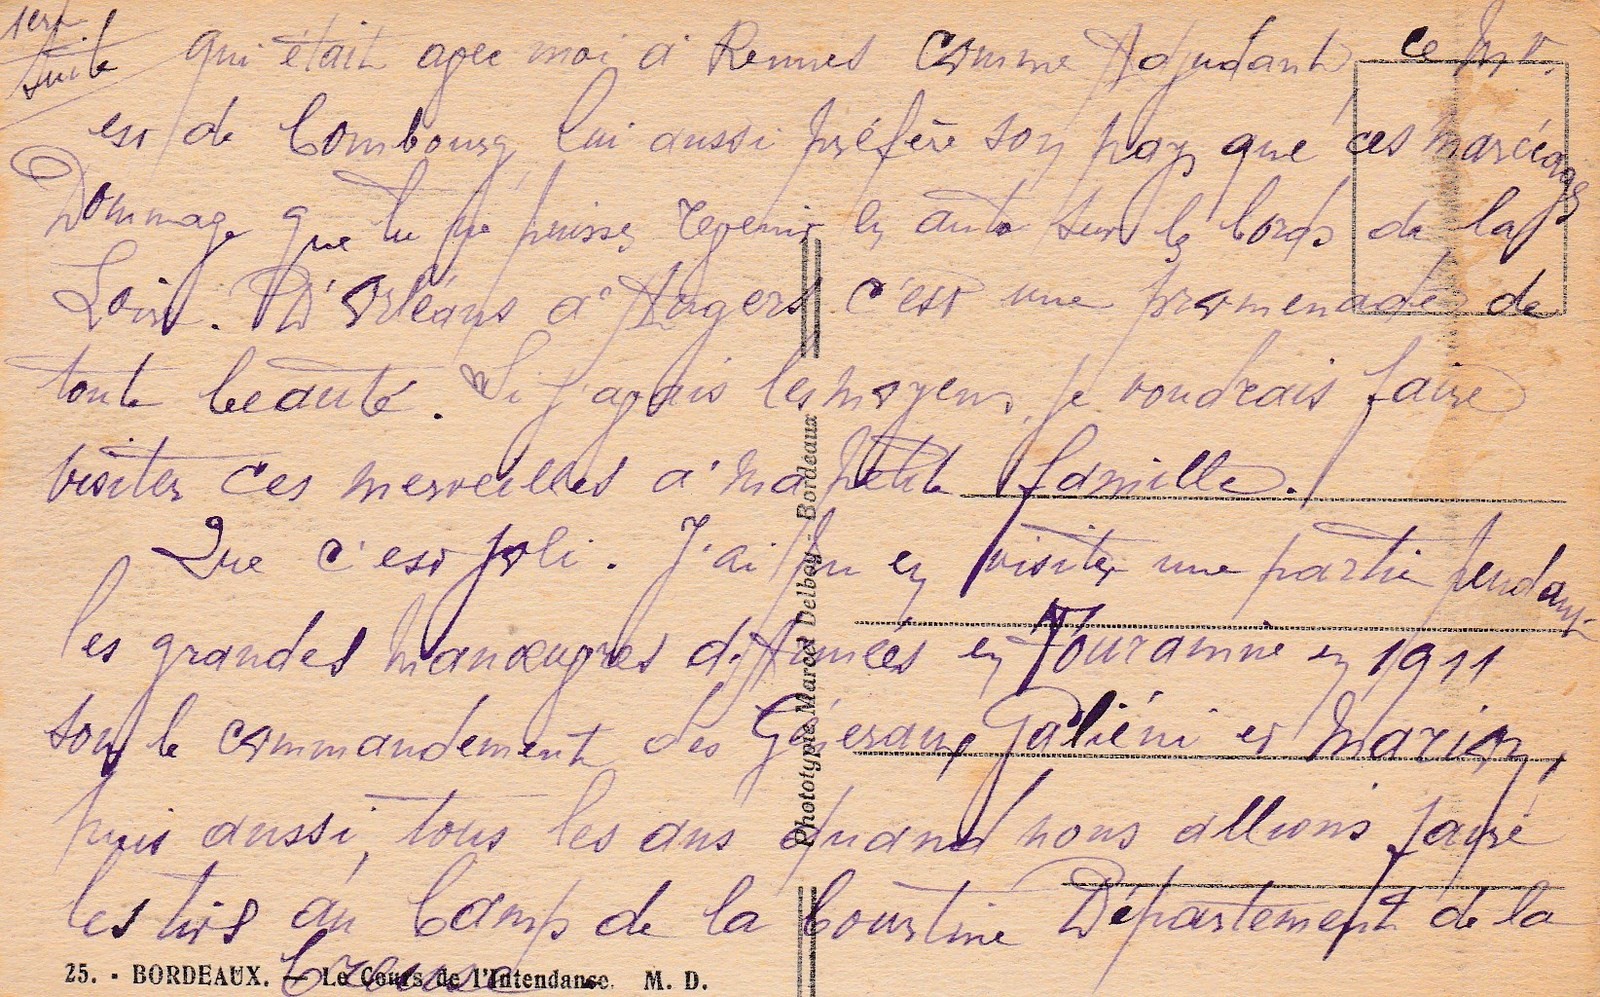 1ère suite
qui était avec moi à Rennes comme Adjudant ce Mr.
est de Combourg, lui aussi préfère son pays que ces
Dommage que tu ne puisses revenir en auto sur les bords de la
Loire. D'Orléans à Angers c'est une promenade de
toute beauté. Si j'avais les moyens, je voudrais faire
visiter ces merveilles à ma petite famille.
Que c'est joli. J'ai pu en visiter une partie pendant
les grandes manœuvres d'Armées en Touraine en 1911
sous le commandement des Généraux Galiéni et
puis aussi, tous les ans quand nous allions faire
les tirs au Camp de la Courtine Département de la
Creuse
Phototypie Marcel Delboy - Bordeaux
25. - BORDEAUX. - Le Cours de l'Intendance. M. D.